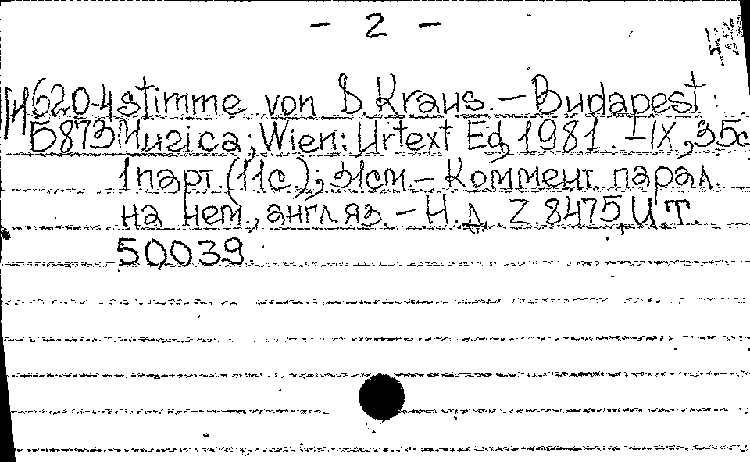 - 2 -
И620-4 stimme von D. Kraus. - Budapest:
Б873 Musica; Wien: Urtext Ed, 1981. - IX, 35с
1 парт. (11с.); 31см - Коммент. парал.
на нем., англ яз. - Н.д. Z 8475 U T.
50039.